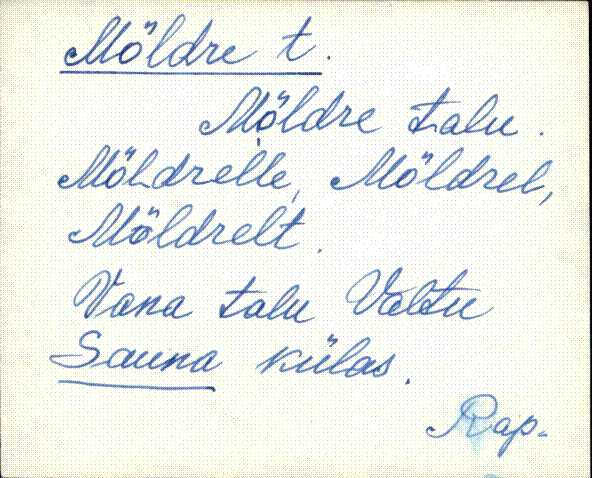 Möldre t.
Möldre talu.
Möldrelle, Möldrel,
Möldrelt.
Vana talu Valtu
Sauna külas.
Rap.